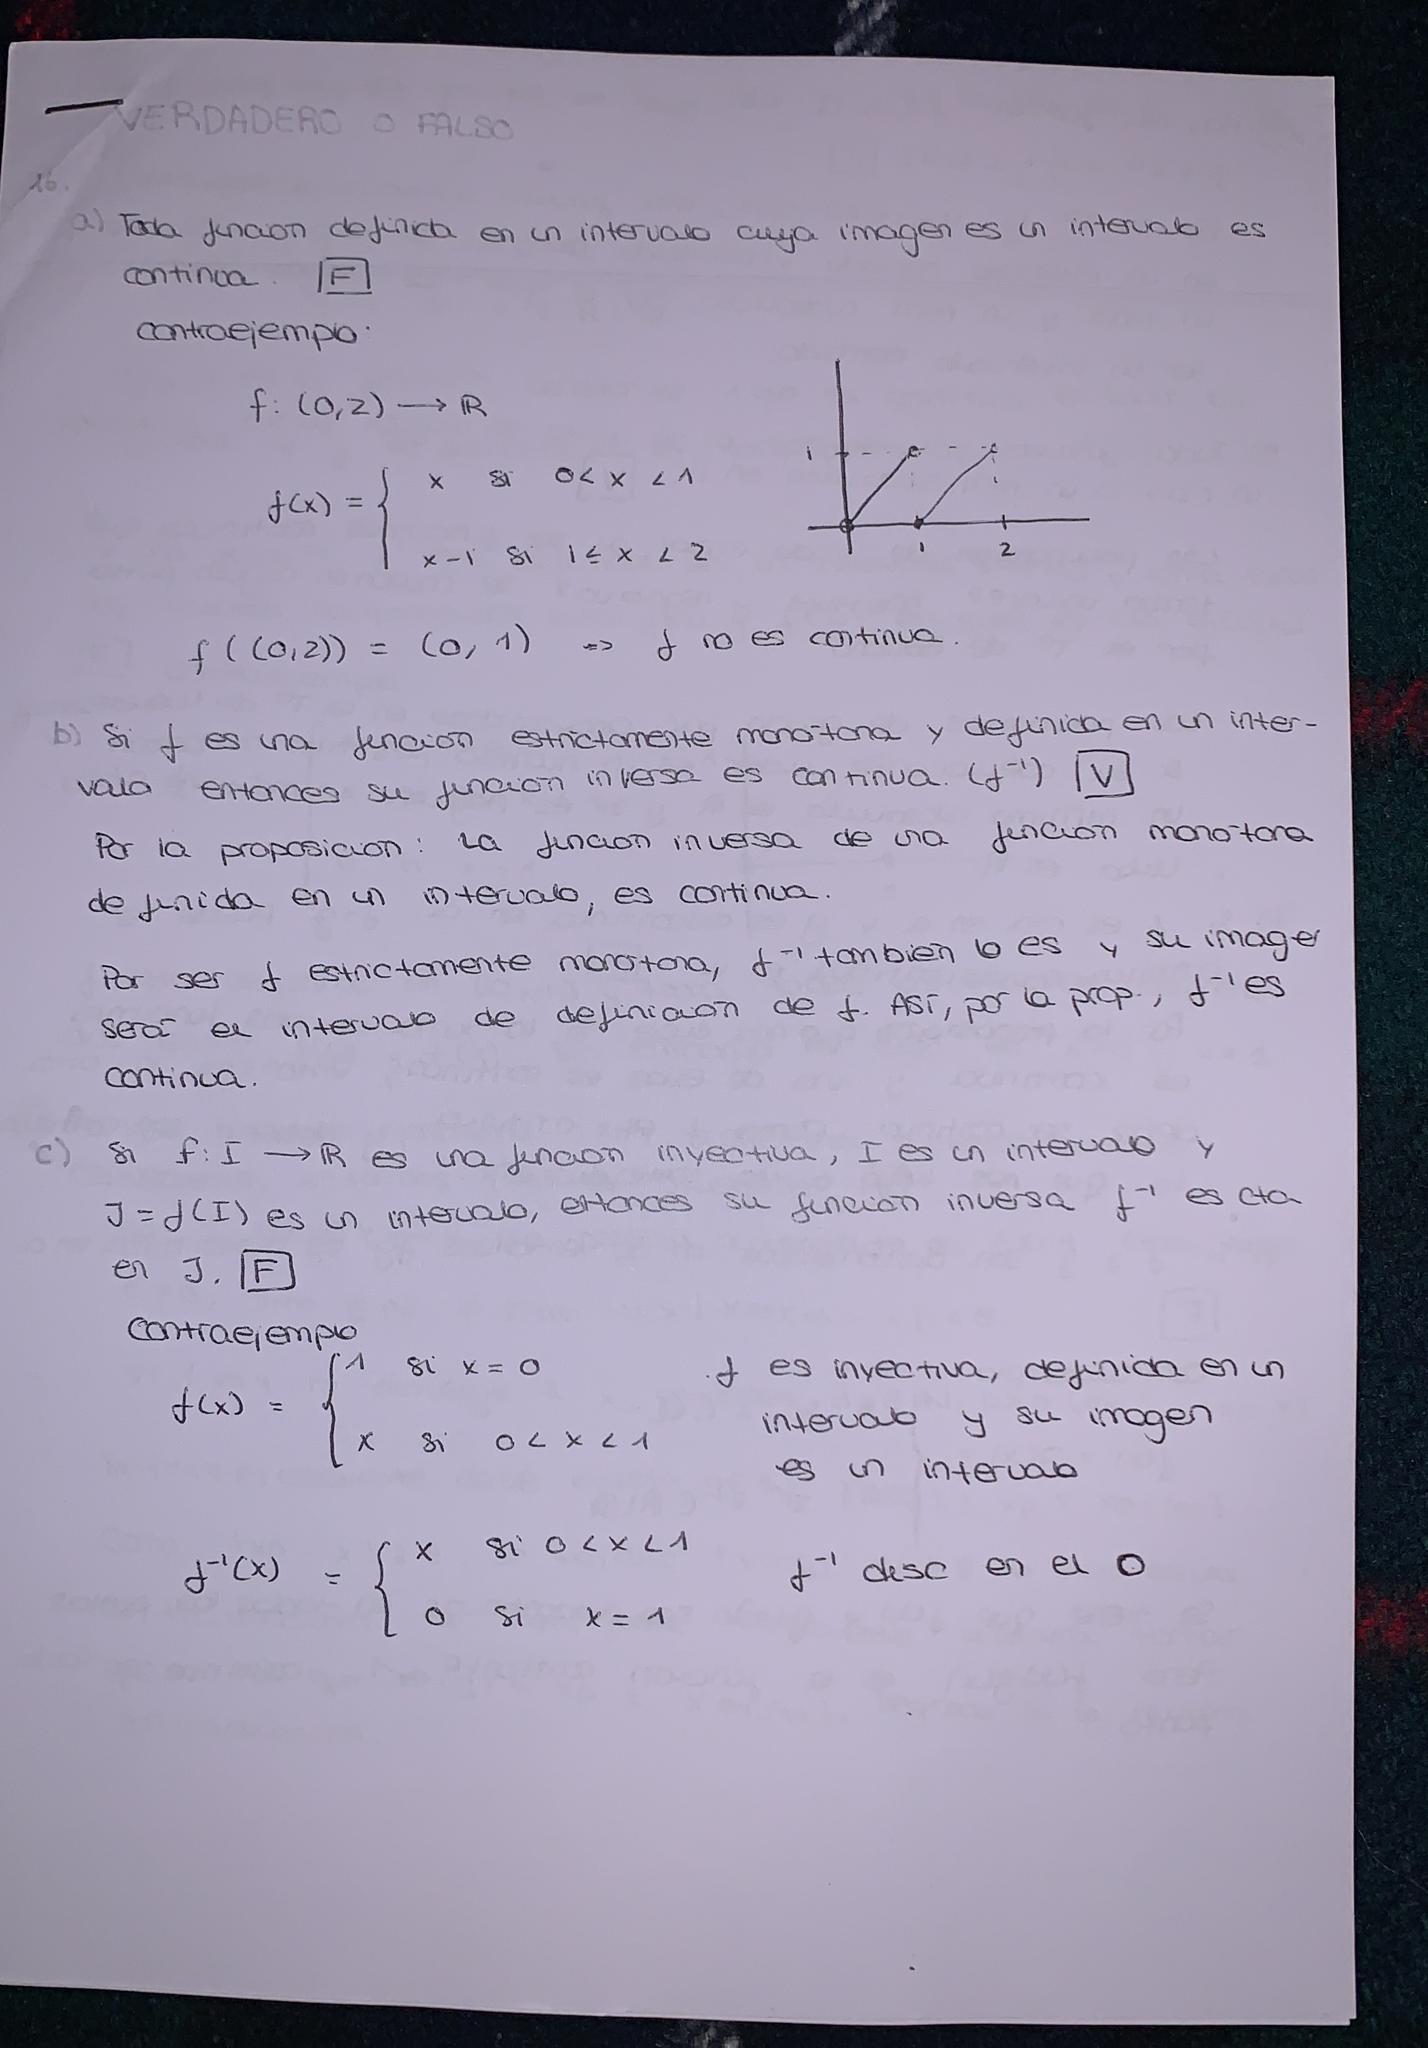 VERDADERO O FALSO
16.
a) Toda función definida en un intervalo cuya imagen es un intervalo es
continua. F
contraejemplo:
f: (0,2) → ℝ
f(x) = { x si 0 < x < 1
x-1 si 1 ≤ x < 2
1
1 2
f((0,2)) = (0,1) => f no es continua.
b) Si f es una función estrictamente monótona y definida en un inter-
valo entonces su función inversa es continua. (f⁻¹) V
Por la proposición: La función inversa de una función monótona
definida en un intervalo, es continua.
Por ser f estrictamente monótona, f⁻¹ también lo es y su imagen
será el intervalo de definición de f. Así, por la prop., f⁻¹ es
continua.
c) Si f: I → ℝ es una función inyectiva, I es un intervalo y
J = f(I) es un intervalo, entonces su función inversa f⁻¹ es cta
en J. F
Contraejemplo
f(x) = { 1 si x = 0
x si 0 < x < 1
. f es inyectiva, definida en un
intervalo y su imagen
es un intervalo
f⁻¹(x) = { x si 0 < x < 1
0 si x = 1
f⁻¹ desc en el 0